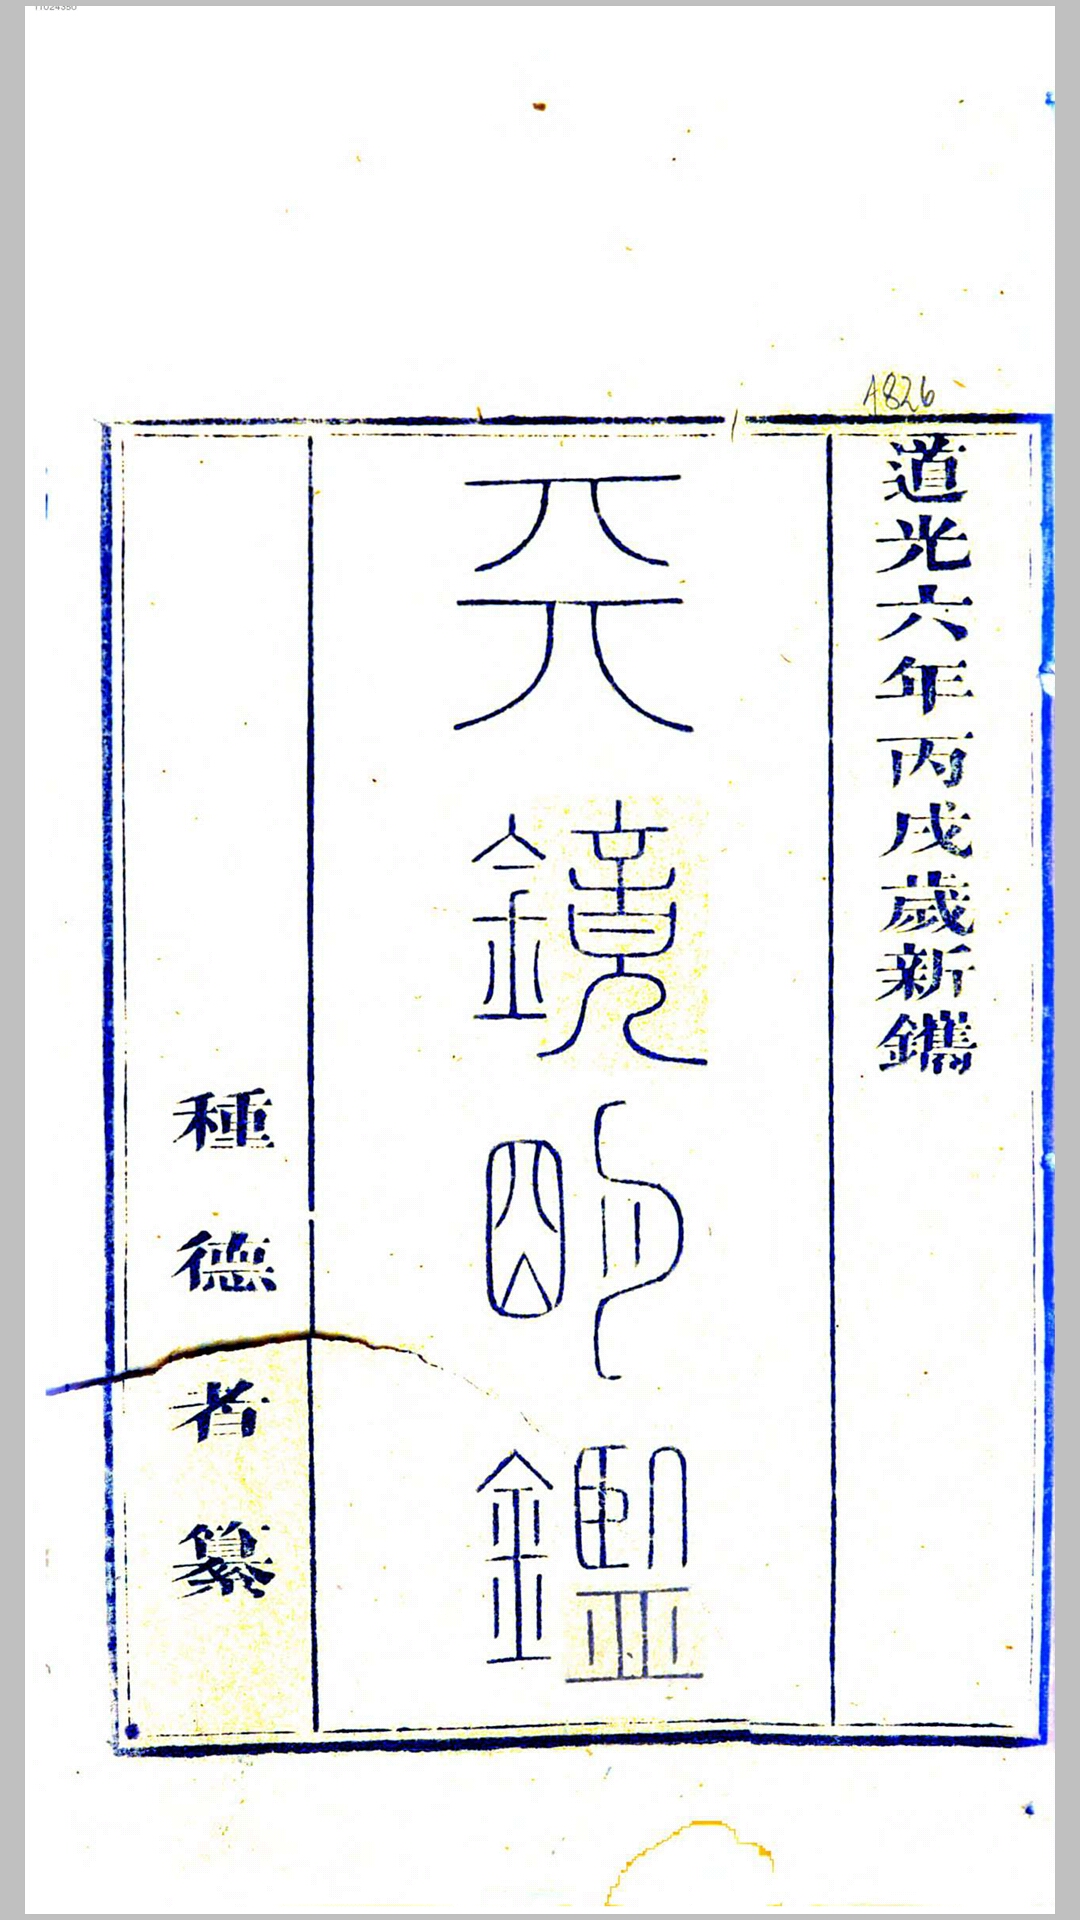 A826
道光六年丙戌歲新鐫
天鏡明鑑
種德者纂